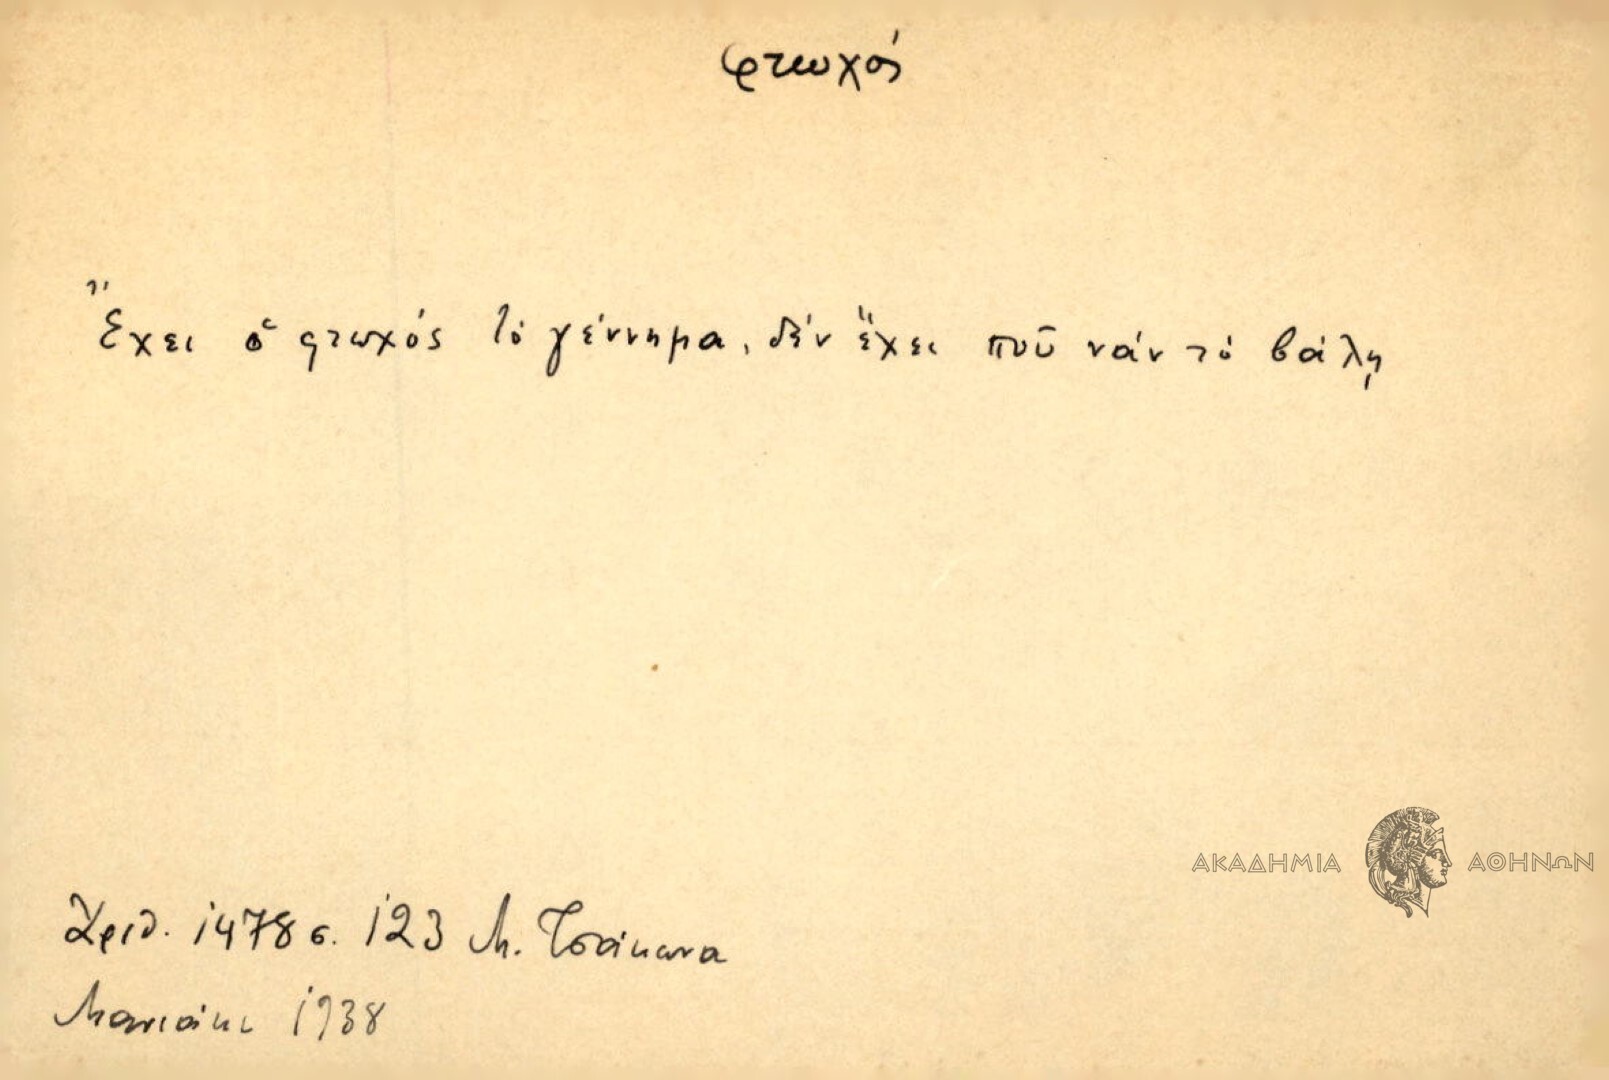 φτωχός
Ἔχει ὁ φτωχός τό γέννημα, δέν ἔχει ποῦ νάν τό βάλῃ
ΑΚΑΔΗΜΙΑ ΑΘΗΝΩΝ
Ἀριθ. 1478 σ. 123 Μ. Τσάκωνα
Μανιάκι 1938